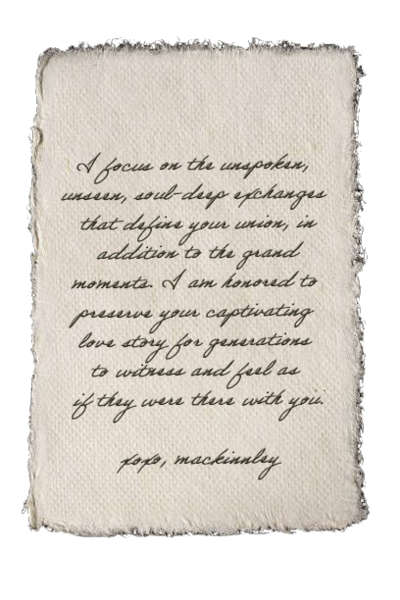 I focus on the unspoken,
unseen, soul-deep exchanges
that define your union, in
addition to the grand
moments. I am honored to
preserve your captivating
love story for generations
to witness and feel as
if they were there with you.
xoxo, mackinnley